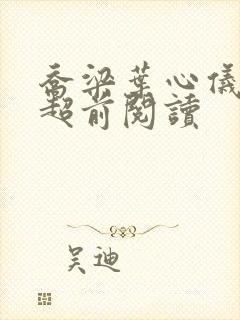 喬梁葉心儀
超前閱讀
吴迪